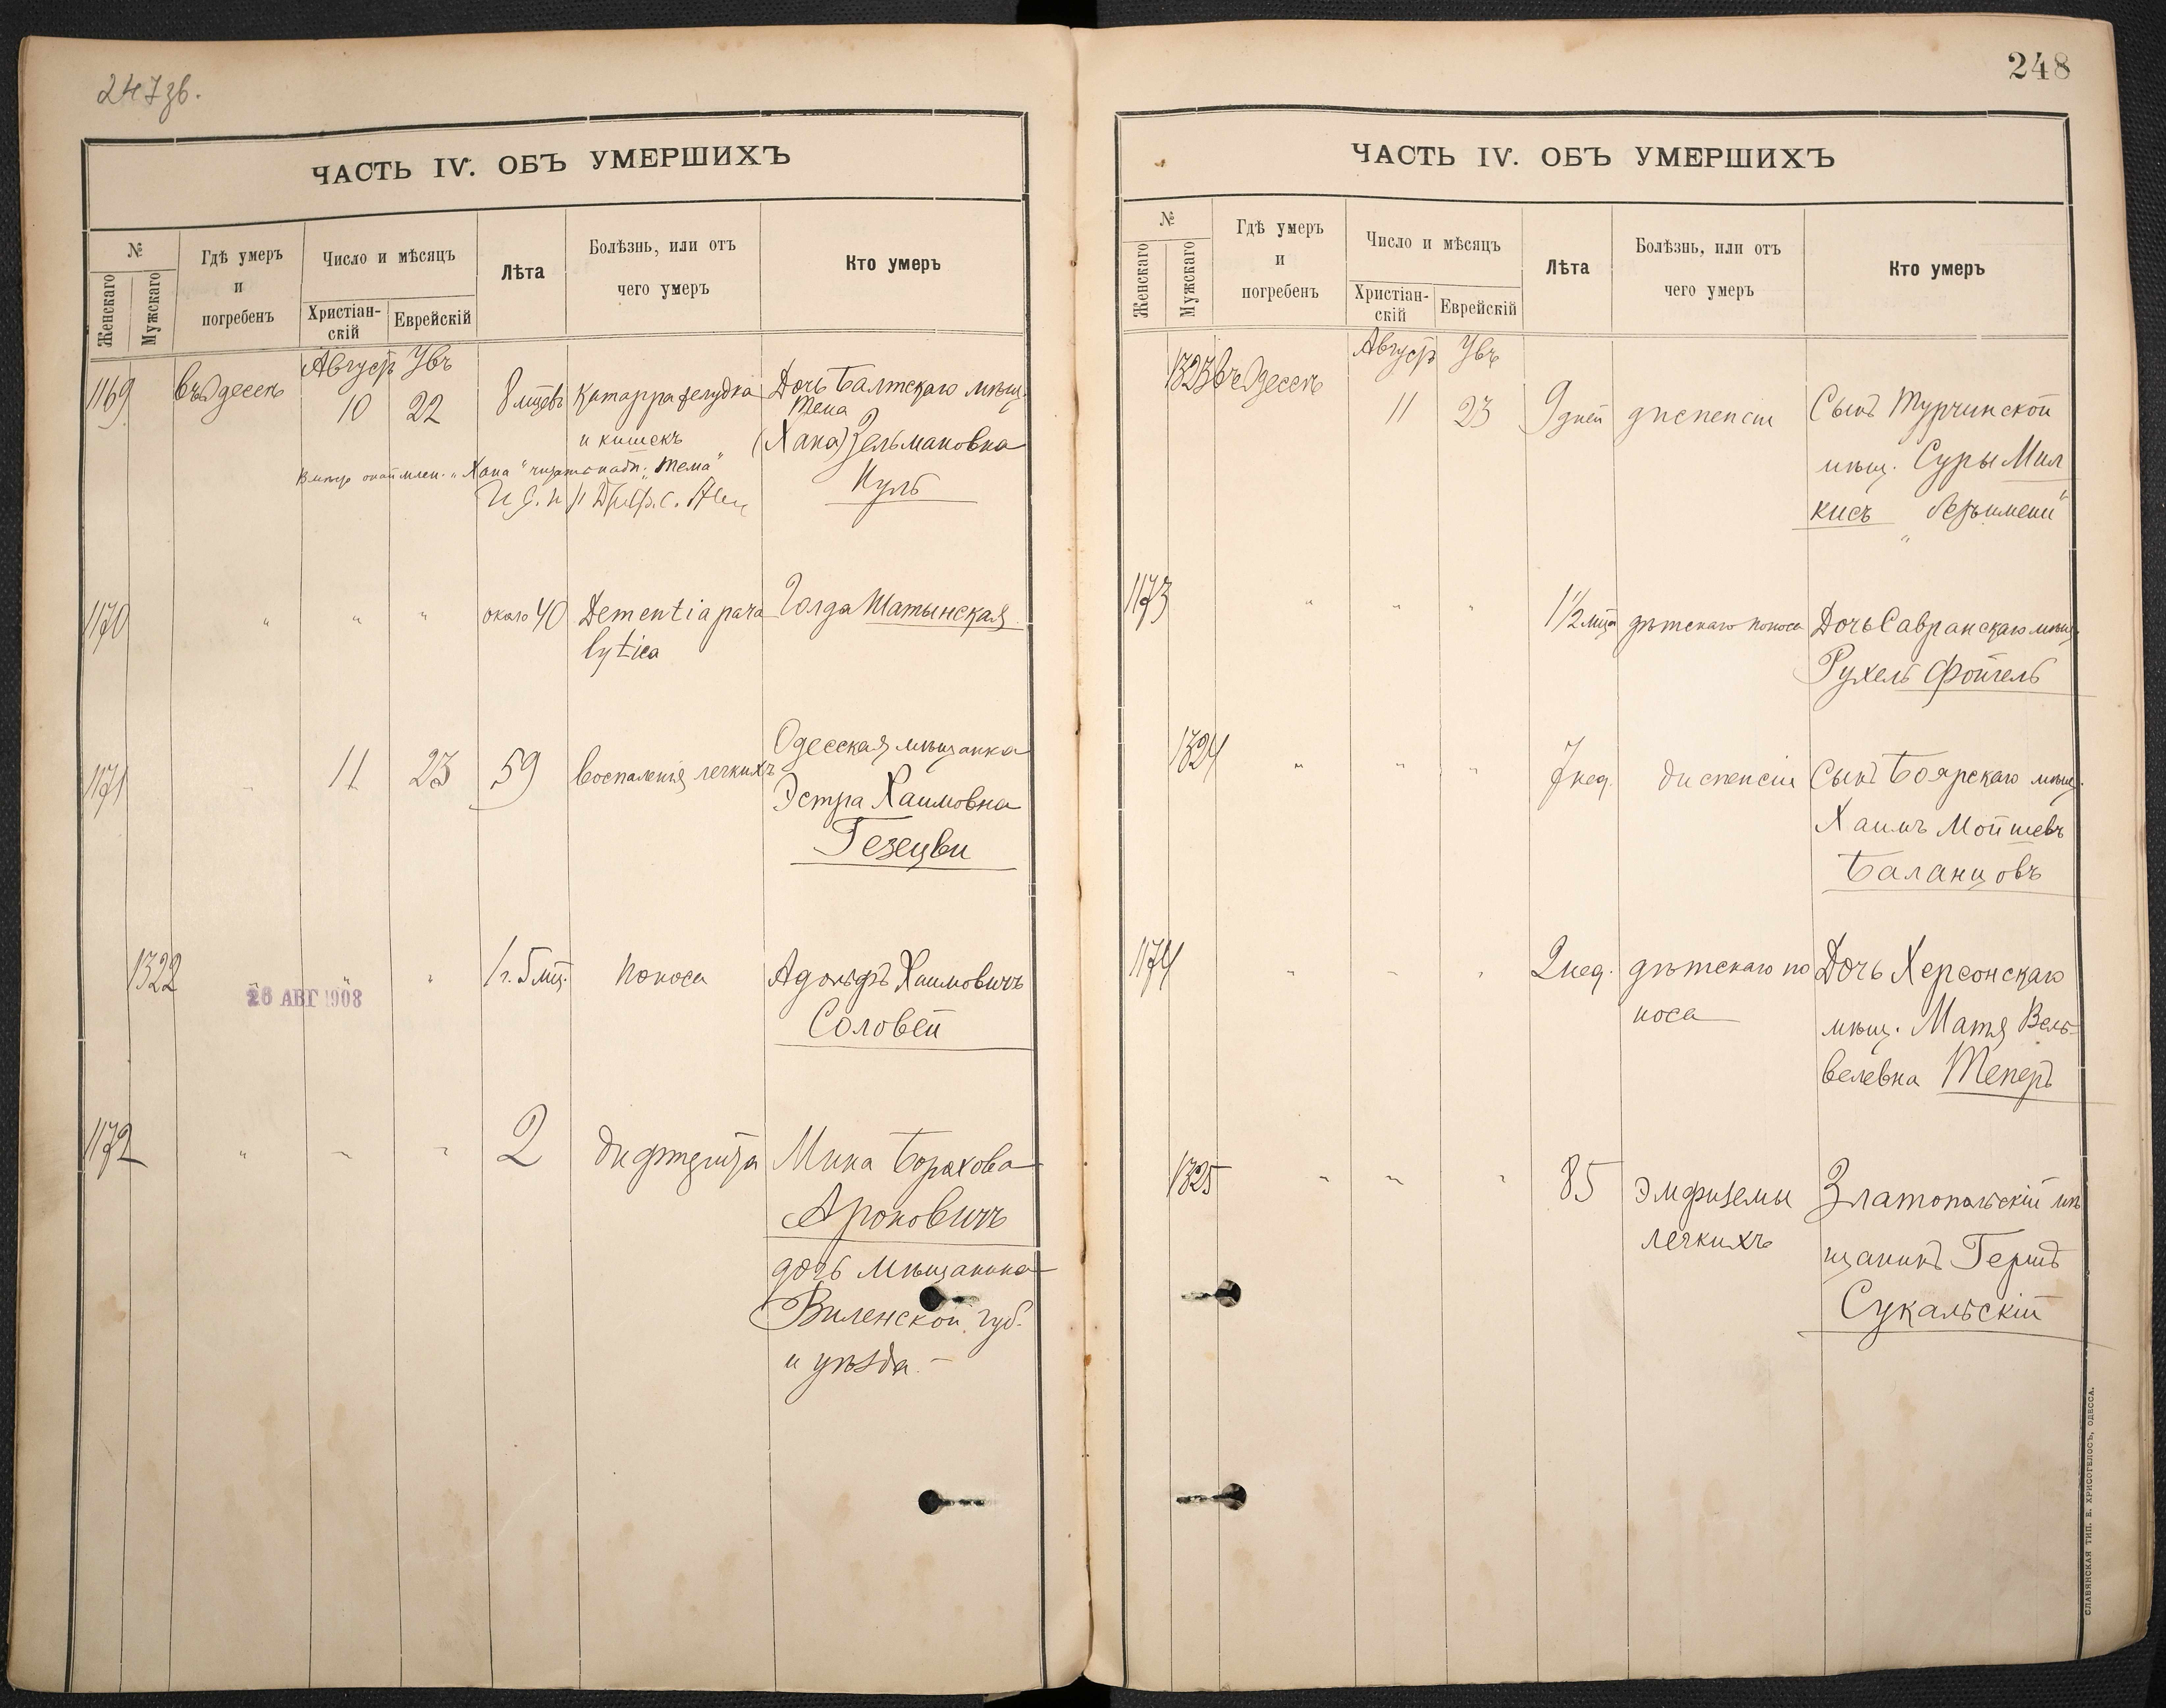 247 зв.
ЧАСТЬ IV. ОБЪ УМЕРШИХЪ
№
Женскаго
Мужскаго
Гдѣ умеръ
и
погребенъ
Число и мѣсяцъ
Христіан-
скій
Еврейскій
Лѣта
Болѣзнь, или отъ
чего умеръ
Кто умеръ
Август Увъ
1169 въ Одессѣ 10 22 8 мцевъ Катарра желудка Дочь Балтскаго мѣщ.
и кишекъ
Тема
(Хана) Зельмановна
"Хана" надп. "Тема"
Куль
1170 " " " около 40 Dementia para Голда Шатынская
lytica
1171 " 11 23 59 воспаленія легкихъ Одесская мѣщанка
Эстра Хаимовна
Гезецви
1322 " " 1 г. 5 мц. поноса Адольфъ Хаимовичъ
26 АВГ 1908
Соловей
1172 " " " 2 дифтерита Мина Борахова
Ароновичъ
дочь мѣщанина
Виленской губ.
и уѣзда. –
248
ЧАСТЬ IV. ОБЪ УМЕРШИХЪ
№
Женскаго
Мужскаго
Гдѣ умеръ
и
погребенъ
Число и мѣсяцъ
Христіан-
скій
Еврейскій
Лѣта
Болѣзнь, или отъ
чего умеръ
Кто умеръ
Август Увъ
1323 въ Одессѣ 11 23 9 дней диспепсіи Сынъ Турчинской
мѣщ. Суры Мил
кисъ "безъ имени"
1173 " " " 1½ мца дѣтскаго поноса Дочь Савранскаго мѣщ.
Рухель Фойгель
1324 " " " 7 нед. диспепсіи Сынъ Боярскаго мѣщ.
Хаимъ Мойшевъ
Баланцовъ
1174 " " " 2 нед. дѣтскаго по Дочь Херсонскаго
носа
мѣщ. Матя Вель-
велевна Теперъ
1325 " " " 85 эмфиземы Златопольскій мѣ
легкихъ
щанинъ Гершъ
Сукальскій
СЛАВЯНСКАЯ ТИП. Е. ХРИСОГЕЛОСЪ, ОДЕССА.